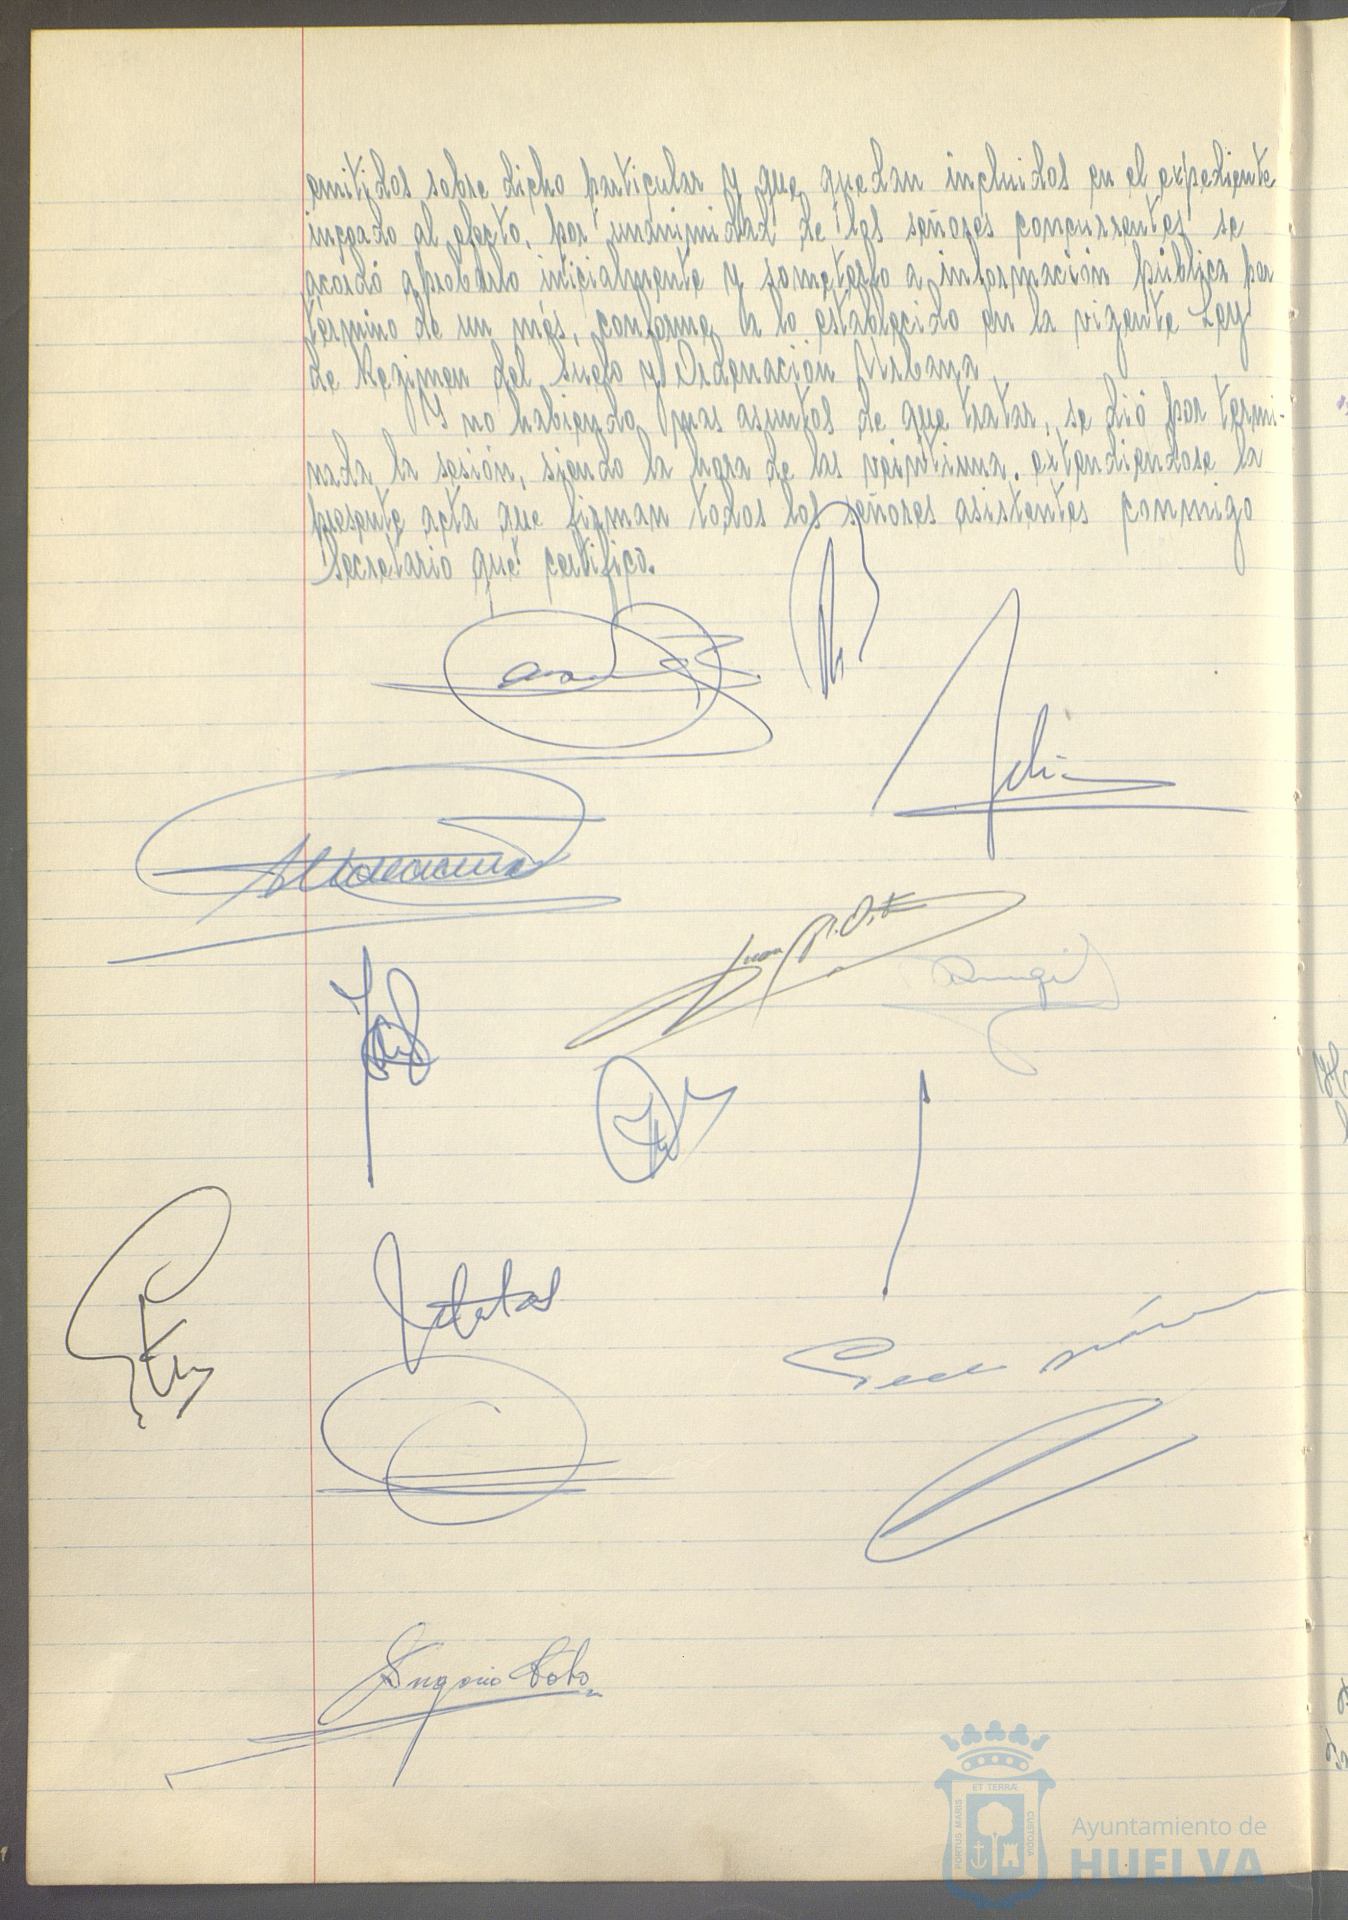 emitidos sobre dicho particular y que quedan incluidos en el expediente
incoado al efecto, por unanimidad de los señores concurrentes se
acordó aprobarlo inicialmente y someterlo a información pública por
termino de un mes, conforme a lo establecido en la vigente Ley
de Regimen del Suelo y Ordenación Urbana.
Y no habiendo mas asuntos de que tratar, se dió por termi-
nada la sesión, siendo la hora de las veintiuna. extendiendose la
presente acta que firman todos los señores asistentes conmigo
Secretario que certifico.
ET TERRÆ
PORTUS MARIS
CUSTODIA
Ayuntamiento de
HUELVA